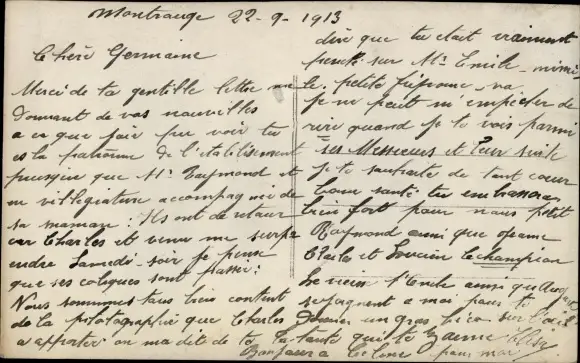 Montrouge 22-9-1913
Chère Germaine
Merci de ta gentille lettre me
donnant de vos nouvelles
a ce que j'ai pu voir tu
es la patronne de l'établissement
puisque que Mr Raymond et
en villegiature accompagnie de
sa maman. Ils ont de retour
car Charles et venu me surpr
endre Samedi soir je pense
que ses coliques sont passer.
Nous sommes tous bien content
de la photographie que Charles
a apporter on ma dit de
dire que tu était vraiment
sur Mr Emile
petite friponne va
je ne peut m'empêcher de
rire quand je te vois parmi
ses Messieurs et leur suite
je te souhaite de tout cœur
bonne santé tu embrassera
bien fort pour nous petit
Raymond ainsi que
et Lucien le champion
le vieux l'Emile ainsi
se joignent a moi pour te
donner un gros
ta tante qui t'aime
pour moi